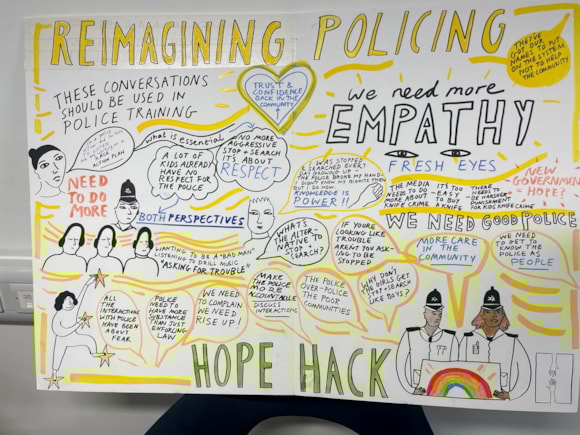 REIMAGINING POLICING
THEY'VE
GOT OUR
NAMES TO PUT
ON THE SYSTEM
NOT TO HELP
THE COMMUNITY
THESE CONVERSATIONS
SHOULD BE USED IN
POLICE TRAINING
TRUST &
CONFIDENCE
BACK IN THE
COMMUNITY
we need more
EMPATHY
FRESH EYES
RACE
ACTION
PLAN
NEED
TO DO
MORE
what is essential
A LOT OF
KIDS ALREADY
HAVE NO
RESPECT FOR
THE POLICE
NO MORE
AGGRESSIVE
STOP + SEARCH
IT'S ABOUT
RESPECT
BOTH PERSPECTIVES
I WAS STOPPED
& SEARCHED EVERY
DAY GROWING UP -
THE POLICE BROKE MY HAND.
I DIDN'T KNOW MY RIGHTS THEN
BUT I DO NOW.
KNOWLEDGE IS
POWER!!
THE MEDIA
NEED TO DO
MORE ABOUT
KNIFE CRIME
IT'S TOO
EASY
TO BUY
A KNIFE
THERE
NEEDS TO
BE HARSHER
PUNISHMENT
NEW
GOVERNMENT
HOPE?
WE NEED GOOD POLICE
WANTING TO BE A "BAD MAN"
LISTENING TO DRILL MUSIC
"ASKING FOR TROUBLE"
WHAT'S
THE ALTER-
NATIVE TO
STOP +
SEARCH?
IF YOU'RE
LOOKING LIKE
TROUBLE
AREN'T YOU ASK-
ING TO BE
STOPPED
MORE CARE
IN THE
COMMUNITY
WE NEED
TO GET TO
KNOW THE
POLICE AS
PEOPLE
ALL
THE
INTERACTIONS
WITH POLICE
HAVE BEEN
ABOUT
FEAR
POLICE
NEED TO
HAVE MORE
SUBSTANCE
THAN JUST
ENFORCING
LAW
WE NEED
TO COMPLAIN
WE NEED
RISE UP!
MAKE
THE POLICE
MORE
ACCOUNTABLE
DISCUSS
INTERACTIONS
THE POLICE
OVER-POLICE
THE POOR
COMMUNITIES
WHY DON'T
THE GIRLS GET
STOP + SEARCH
LIKE BOYS?
HOPE HACK